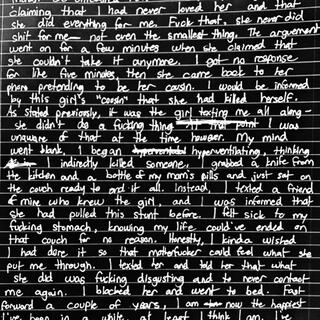 claiming that I had never loved her and that
she did everything for me. Fuck that, she never did
shit for me— not even the smallest thing. The arguement
went on for a few minutes when she claimed that
she couldn't take it anymore. I got no response
for like five minutes, then she came back to her
phone pretending to be her cousin. I would be informed
by this girl's "cousin" that she had killed herself.
As stated previously, it was the girl texting me all along—
she didn't do a fucking thing. I was
unaware of that at the time however. My mind
went blank. I began hyperventilating, thinking
I indirectly killed someone. I grabbed a knife from
the kitchen and a bottle of my mom's pills and just sat on
the couch ready to end it all. Instead, I texted a friend
of mine who knew the girl, and I was informed that
she had pulled this stunt before. I felt sick to my
fucking stomach, knowing my life could've ended on
that couch for no reason. Honestly, I kinda wished
I had done it so that motherfucker could feel what she
put me through. I texted her and told her that what
she did was fucking disgusting and to never contact
me again. I blocked her and went to bed. Fast
forward a couple of years, I am now the happiest
I've been in a while, at least I think I am. I've